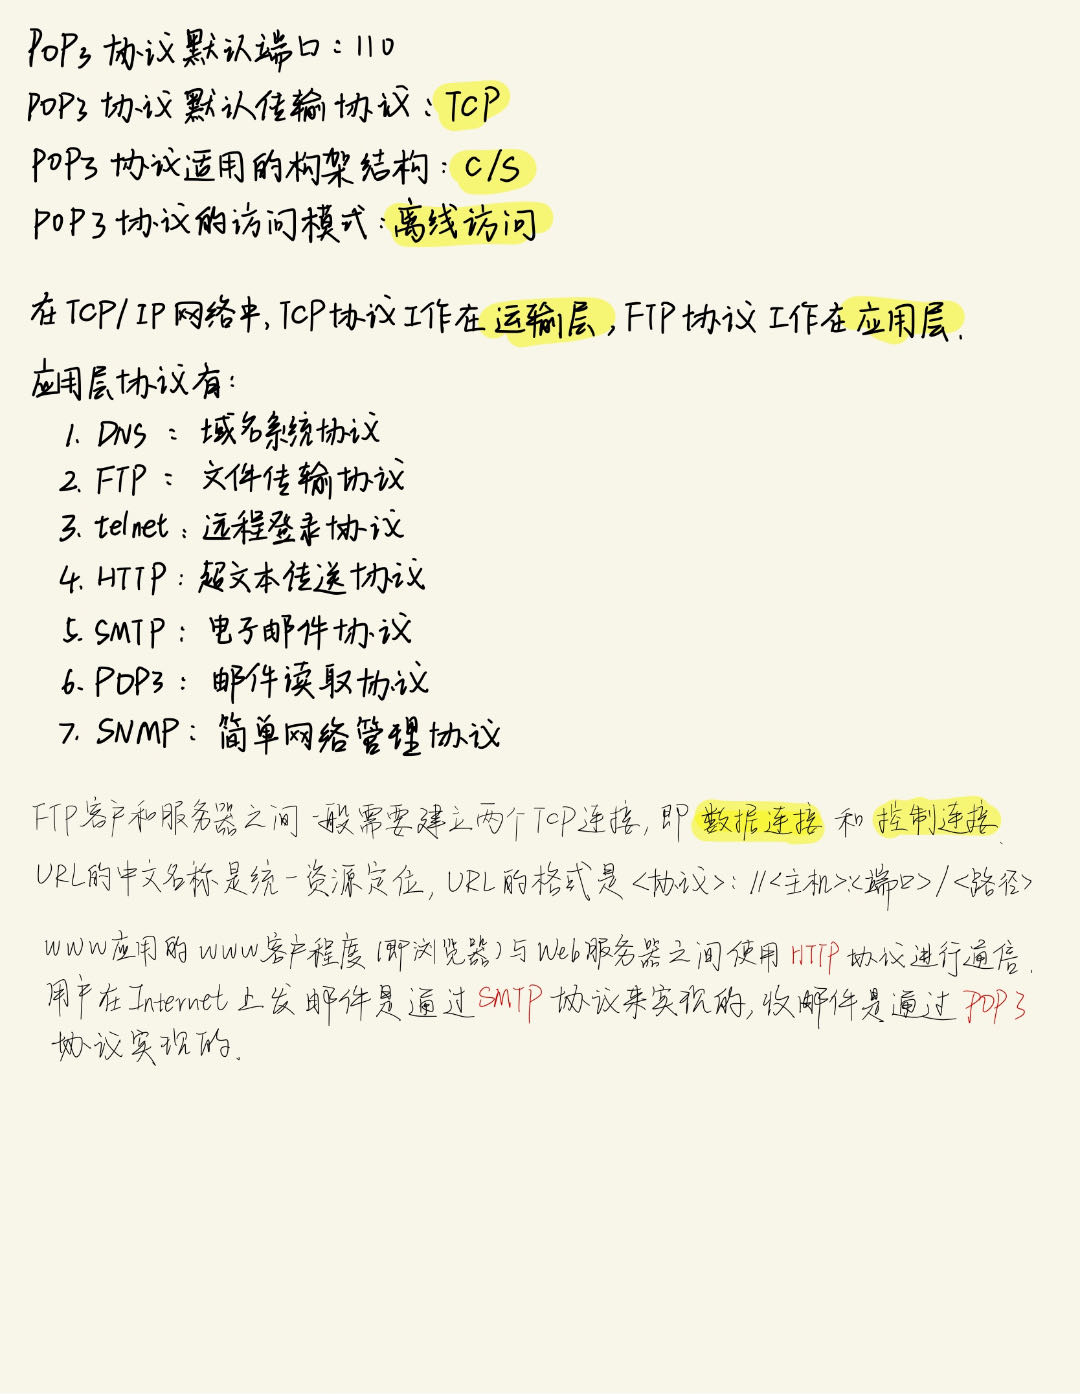 POP3 协议默认端口:110
POP3 协议默认传输协议:TCP
POP3 协议适用的构架结构:C/S
POP3 协议的访问模式:离线访问
在TCP/IP网络中,TCP协议工作在运输层,FTP协议工作在应用层.
应用层协议有:
1. DNS : 域名系统协议
2. FTP : 文件传输协议
3. telnet: 远程登录协议
4. HTTP: 超文本传送协议
5. SMTP: 电子邮件协议
6. POP3: 邮件读取协议
7. SNMP: 简单网络管理协议
FTP客户和服务器之间一般需要建立两个TCP连接,即 数据连接 和 控制连接.
URL的中文名称是统一资源定位,URL的格式是<协议>://<主机>:<端口>/<路径>
WWW应用的WWW客户程度(即浏览器)与Web服务器之间使用HTTP协议进行通信.
用户在Internet上发邮件是通过SMTP协议来实现的,收邮件是通过POP3
协议实现的.